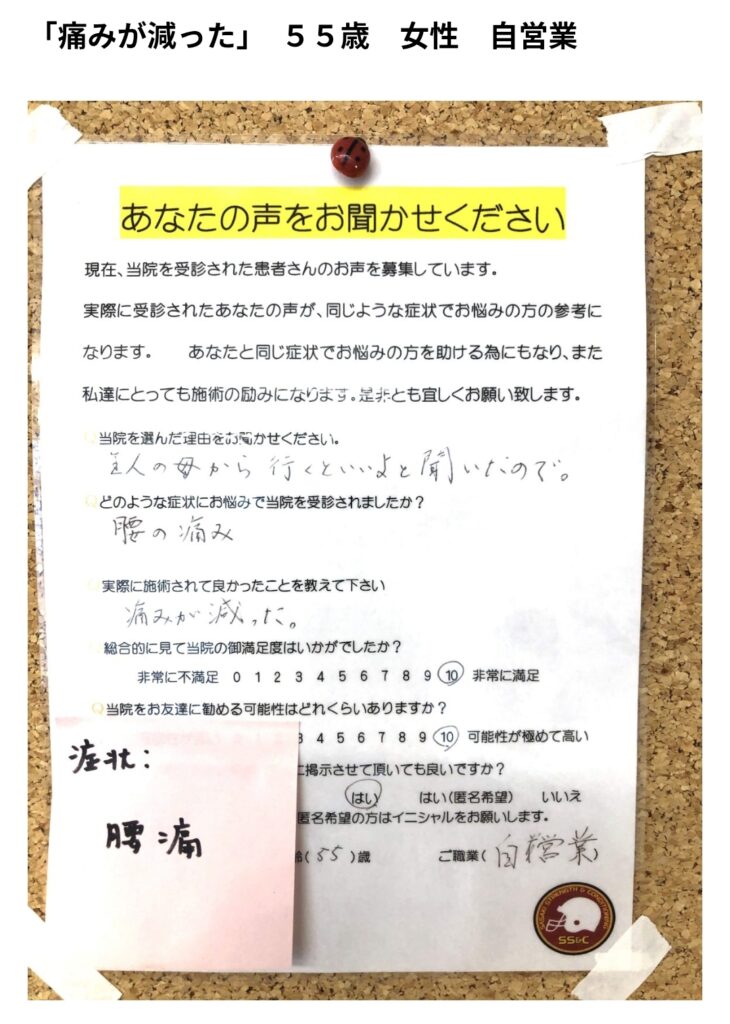 「痛みが減った」　５５歳　女性　自営業
あなたの声をお聞かせください
現在、当院を受診された患者さんのお声を募集しています。
実際に受診されたあなたの声が、同じような症状でお悩みの方の参考に
なります。　あなたと同じ症状でお悩みの方を助ける為にもなり、また
私達にとっても施術の励みになります。是非とも宜しくお願い致します。
Q当院を選んだ理由をお聞かせください。
人の母から行くといいよと聞いたので。
Qどのような症状にお悩みで当院を受診されましたか？
腰の痛み
Q実際に施術されて良かったことを教えて下さい
痛みが減った。
Q総合的に見て当院の御満足度はいかがでしたか？
非常に不満足 0 1 2 3 4 5 6 7 8 9 10 非常に満足
Q当院をお友達に勧める可能性はどれくらいありますか？
3 4 5 6 7 8 9 10 可能性が極めて高い
に掲示させて頂いても良いですか？
はい　はい（匿名希望）　いいえ
匿名希望の方はイニシャルをお願いします。
齢（55）歳　ご職業（自営業）
症状：
腰痛
STRENGTH & CONDITIONING
SS&C